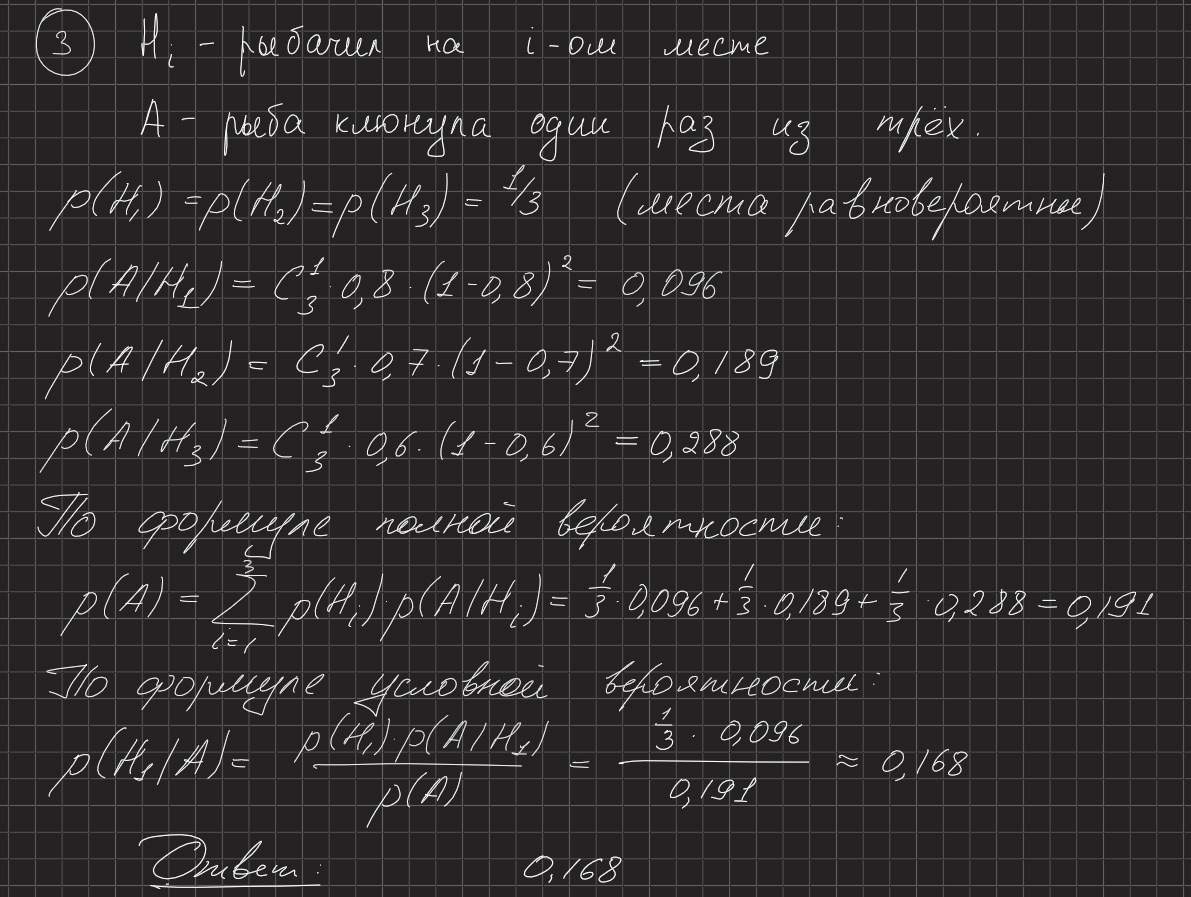 3 Hᵢ - рыбачил на i-ом месте
A - рыба клюнула один раз из трёх.
p(H₁) = p(H₂) = p(H₃) = 1/3 (места равновероятны)
p(A/H₁) = C₃¹ · 0,8 · (1-0,8)² = 0,096
p(A/H₂) = C₃¹ · 0,7 · (1-0,7)² = 0,189
p(A/H₃) = C₃¹ · 0,6 · (1-0,6)² = 0,288
По формуле полной вероятности:
p(A) = ∑ᵢ₌₁³ p(Hᵢ)·p(A/Hᵢ) = 1/3 · 0,096 + 1/3 · 0,189 + 1/3 · 0,288 = 0,191
По формуле условной вероятности:
p(H₁/A) = p(H₁)·p(A/H₁) / p(A) = 1/3 · 0,096 / 0,191 ≈ 0,168
Ответ: 0,168